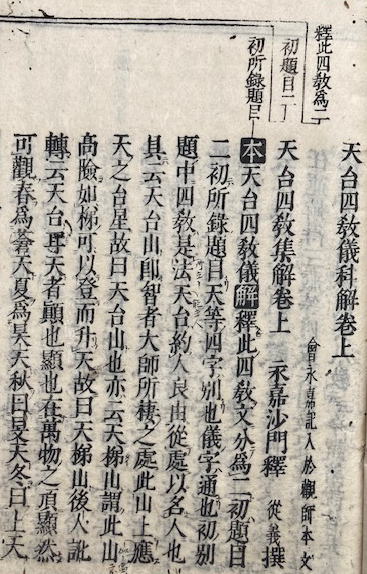 釋此四教為二
初題目二
初所錄題目
天台四教儀科解卷上
會永嘉記入於觀師本文
天台四教集解卷上　永嘉沙門釋　從義撰
本天台四教儀解釋此四教文分為二初題目
二初所錄題目天等四字別也儀字通也初別
題中四教是法天台約人良由從處以名人也
具云天台山即智者大師所棲之處此山上應
天之台星故曰天台山也亦云天梯山謂此山
高險如梯可以登而升天故曰天梯山後人訛
轉云天台耳天者顛也顯也在萬物之頂顯然
可觀春為蒼天夏為昊天秋曰旻天冬曰上天